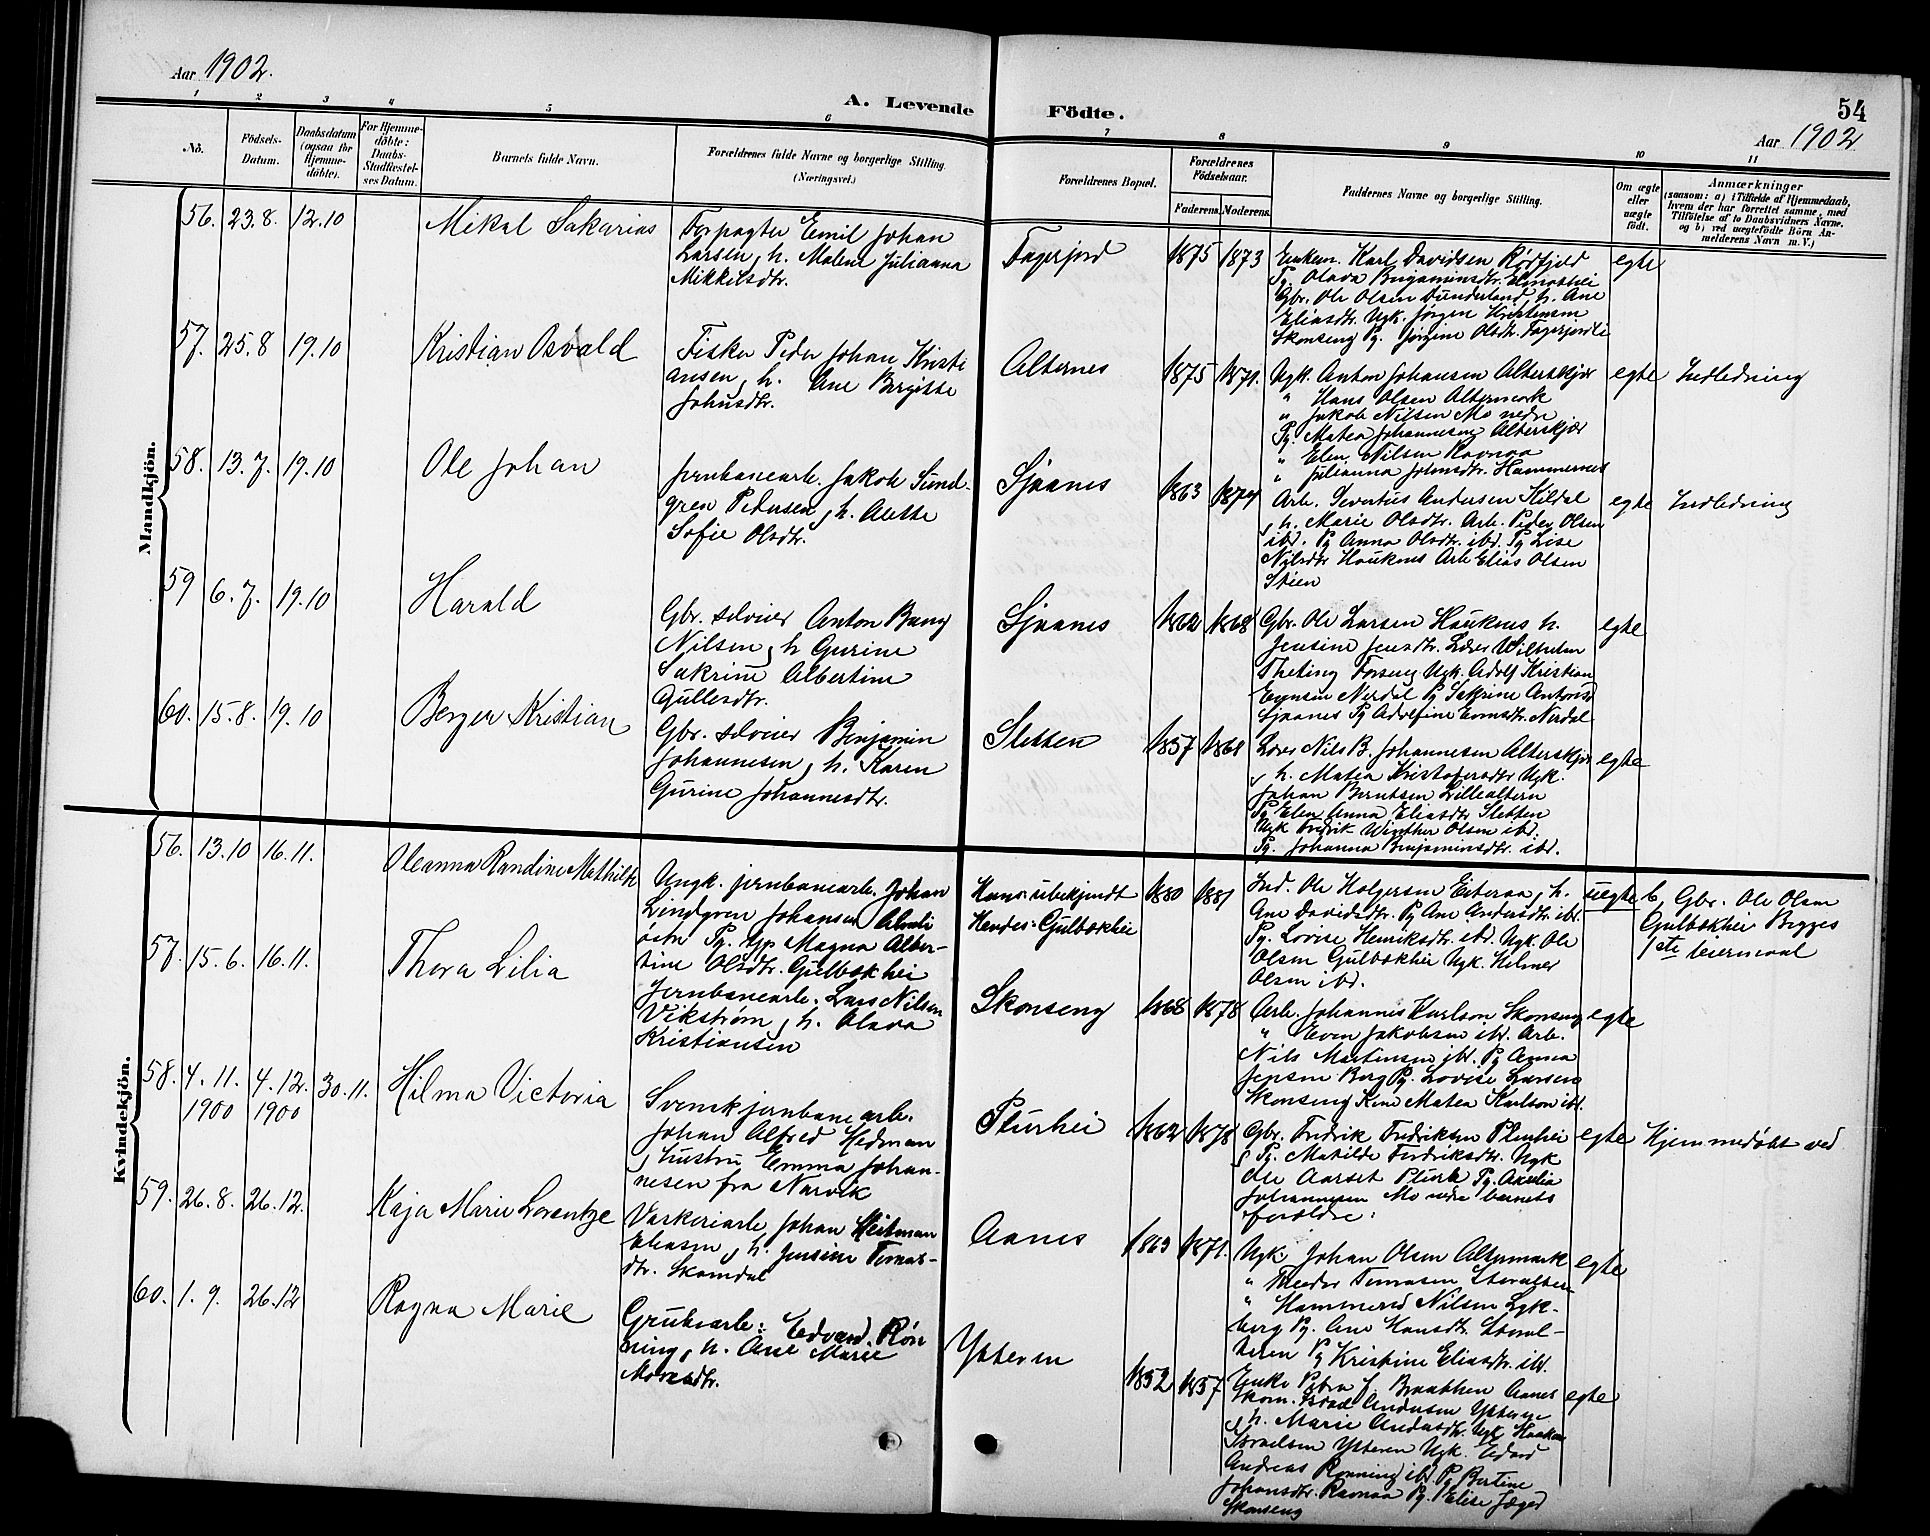 Aar 1902.
A. Levende Födte.
54
Aar 1902
1 2 3 4 5 6 7 8 9 10 11
No.
Födsels-
Datum.
Daabsdatum
(ogsaa for
Hjemme-
döbte).
For Hjemme-
döbte:
Daabs-
Stadfæstel-
ses Datum.
Barnets fulde Navn.
Forældrenes fulde Navne og borgerlige Stilling.
(Næringsvei.)
Forældrenes Bopæl.
Forældrenes
Födselsaar.
Faderens. Moderens.
Faddernes Navne og borgerlige Stilling.
Om ægte
eller
uægte
födt.
Anmærkninger
(saasom: a) i Tilfælde af Hjemmedaab,
hvem der har forrettet samme, med
Tilföielse af to Daabsvidners Navne.
og b) ved uægtefödte Börn An-
melderens Navn m. V.)
Mandkjön.
56. 23.8. 12.10
Mikal Sakarias
Forpagter Emil Johan
Larsen, h. Malene Julianna
Mikkelsdtr.
Fagerjord
1875 1873
Enkem. Karl Davidsen Rødfjeld
Pg. Olava Benjaminsdtr.
Gbr. Ole Olsen Dunderland, h. Ane
Eliasdtr. Ugk. Jørgen Kristensen
Skonseng Pg. Jørgine Olsdtr. Fagerjordli
egte
57. 25.8 19.10
Kristian Osvald
Fisker Peder Johan Kristi
ansen, h. Ane Birgitte
Johnsdtr.
Alternes
1875 1871.
Ugk. Anton Johansen Alterskjær
" Hans Olsen Altermark
" Jakob Nilsen Mo nedre
Pg. Matea Johannesen Alterskjær
" Elen Nilsen Ravnaa
" Julianna Johnsdtr. Hammernes
egte
Indledning
58. 13.7. 19.10
Ole Johan
Jernbanearb. Jakob Sund-
gren Pedersen, h. Anette
Sofie Olsdtr.
Sjaanes
1863 1874
Arb. Severtus Andersen Kildal
, h. Marie Olsdtr. Arb. Peder Olsen
ibd. Pg Anna Olsdtr. ibd. Pg Lise
Nilsdtr Haukenes Arb Elias Olsen
Stien
egte
Indledning
59 6.7. 19.10
Harald
Gbr. selveier Anton Bang
Nilsen, h Gurine
Sakrine Albertine
Gullesdtr.
Sjaanes
1862 1868
Gbr. Ole Larsen Haukenes h.
Jensine Jensdtr. Lærer Wilhelm
Theting Forseng Ugk. Adolf Kristian
Evensen Nerdal Pg Sakrine Antonsd
Sjaanes Pg Adolfine Evensdtr. Nerdal
egte
60. 15.8. 19.10
Berger Kristian
Gbr. selveier Benjamin
Johannesen, h. Karen
Gurine Johannesdtr.
Sletten
1857 1861
Lærer Nils B. Johannesen Alterskjær
, h. Matea Kristofersdtr Ugk.
Johan Berntsen Lillealteren
Pg Elen Anna Eliasdtr Sletten
Ugk Fredrik Winther Olsen ibd.
Pg. Johanna Benjaminsdtr. ibd.
egte
Kvindekjön.
56. 13.10 16.11.
Oleanna Randine Mathilde
Ungk. jernbanearb. Johan
Lindgren Johansen
Pg. Magna Alber-
tine Olsdtr. Gulbakhei
Hans: ubekjendt
Hendes: Gulbakhei
1880 1881
Ind. Ole Holgersen Eiteraa, h.
Ane Davidsdtr. Pg Ane Andersdtr. ibd.
Pg. Lovise Henriksdtr. ibd. Ugk. Ole
Olsen Gulbakhei Ugk. Helmer
Olsen ibd.
uegte
b, Gbr. Ole Olsen
Gulbakhei Begges
1ste leiermaal
57. 15.6. 16.11.
Thora Lilia
Jernbanearb. Lars Nilsen
Vikstrøm, h. Olava
Kristiansen
Skonseng
1868 1878
Arb. Johannes Karlson Skonseng
" Even Jakobsen ibd. Arb.
Nils Martinsen ibd. Pg Anna
Jensen Berg Pg. Lovise Larsen
Skonseng Kone Matea Karlson ibd.
egte
58. 4.11. 4.12. 30.11.
1900 1900
Hilma Victoria
Svensk jernbanearb.
Johan Alfred Hedman
, hustru Emma Johan-
nesen fra Narvik
Plurhei
1862 1878
Gbr. Fredrik Fredriksen Plurhei
Pg. Matilde Fredriksdtr. Ugk
Ole Aarset Plurh Pg.
Johannesen Mo nedre barnets
foreldre.
egte
Hjemmedøbt ved
59. 26.8. 26.12.
Kaja Marie Lorentze
Verkeriarb Johan Heitman
Eliasen, h. Jensine Tomas-
dtr. Skamdal
Aanes
1863 1871.
Ugk. Johan Olsen Altermark
" Theodor Tomasen Storalteren
" Hammered Nilsen Lyk-
berg Pg. Ane Hansdtr. Storal-
teren Pg Kristine Eliasdtr. ibd.
egte
60. 1.9. 26.12
Ragna Marie
Grubearb. Edvard Røn
ning, h. Ane Marie
Mørchdtr.
Ytteren
1852 1857
Enke Petra J. Braathen Aanes
Skom. Israel Andersen Ytteren
, h. Marie Andersdtr. Ugk Haakon
Israelsen Ytteren Ugk. Edvard
Andreas Rønning ibd Pg Bertine
Johansdtr. Ravnaa Pg. Elise Jæger
Skonseng
egte